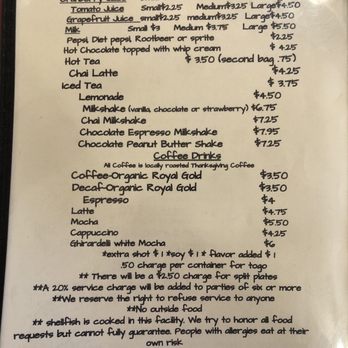 Tomato Juice small$2.25 medium$3.25 Large$4.50
Grapefruit Juice small$2.25 medium$3.25 Large$4.50
Milk Small $3 Medium $3.75 Large $5.50
Pepsi, Diet pepsi, Rootbeer or sprite $2.25
Hot Chocolate topped with whip cream $ 4.25
Hot Tea $ 3.50 (second bag .75)
Chai Latte $4.25
Iced Tea $ 3.75
Lemonade $4.50
Milkshake (vanilla, chocolate or strawberry) $6.75
Chai Milkshake $7.25
Chocolate Espresso Milkshake $7.95
Chocolate Peanut Butter Shake $7.25
Coffee Drinks
All Coffee is locally roasted Thanksgiving Coffee
Coffee-Organic Royal Gold $3.50
Decaf-Organic Royal Gold $3.50
Espresso $4
Latte $4.75
Mocha $5.50
Cappuccino $4.25
Ghirardelli white Mocha $6
*extra shot $ 1 *soy $ 1 * flavor added $ 1
.50 charge per container for togo
** There will be a $2.50 charge for split plates
**A 20% service charge will be added to parties of six or more
**We reserve the right to refuse service to anyone
**No outside food
** shellfish is cooked in this facility. We try to honor all food
requests but cannot fully guarantee. People with allergies eat at their
own risk.